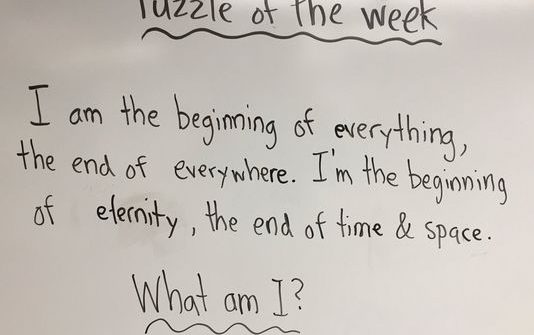 Puzzle of the week
I am the beginning of everything,
the end of everywhere. I'm the beginning
of eternity, the end of time & space.
What am I?